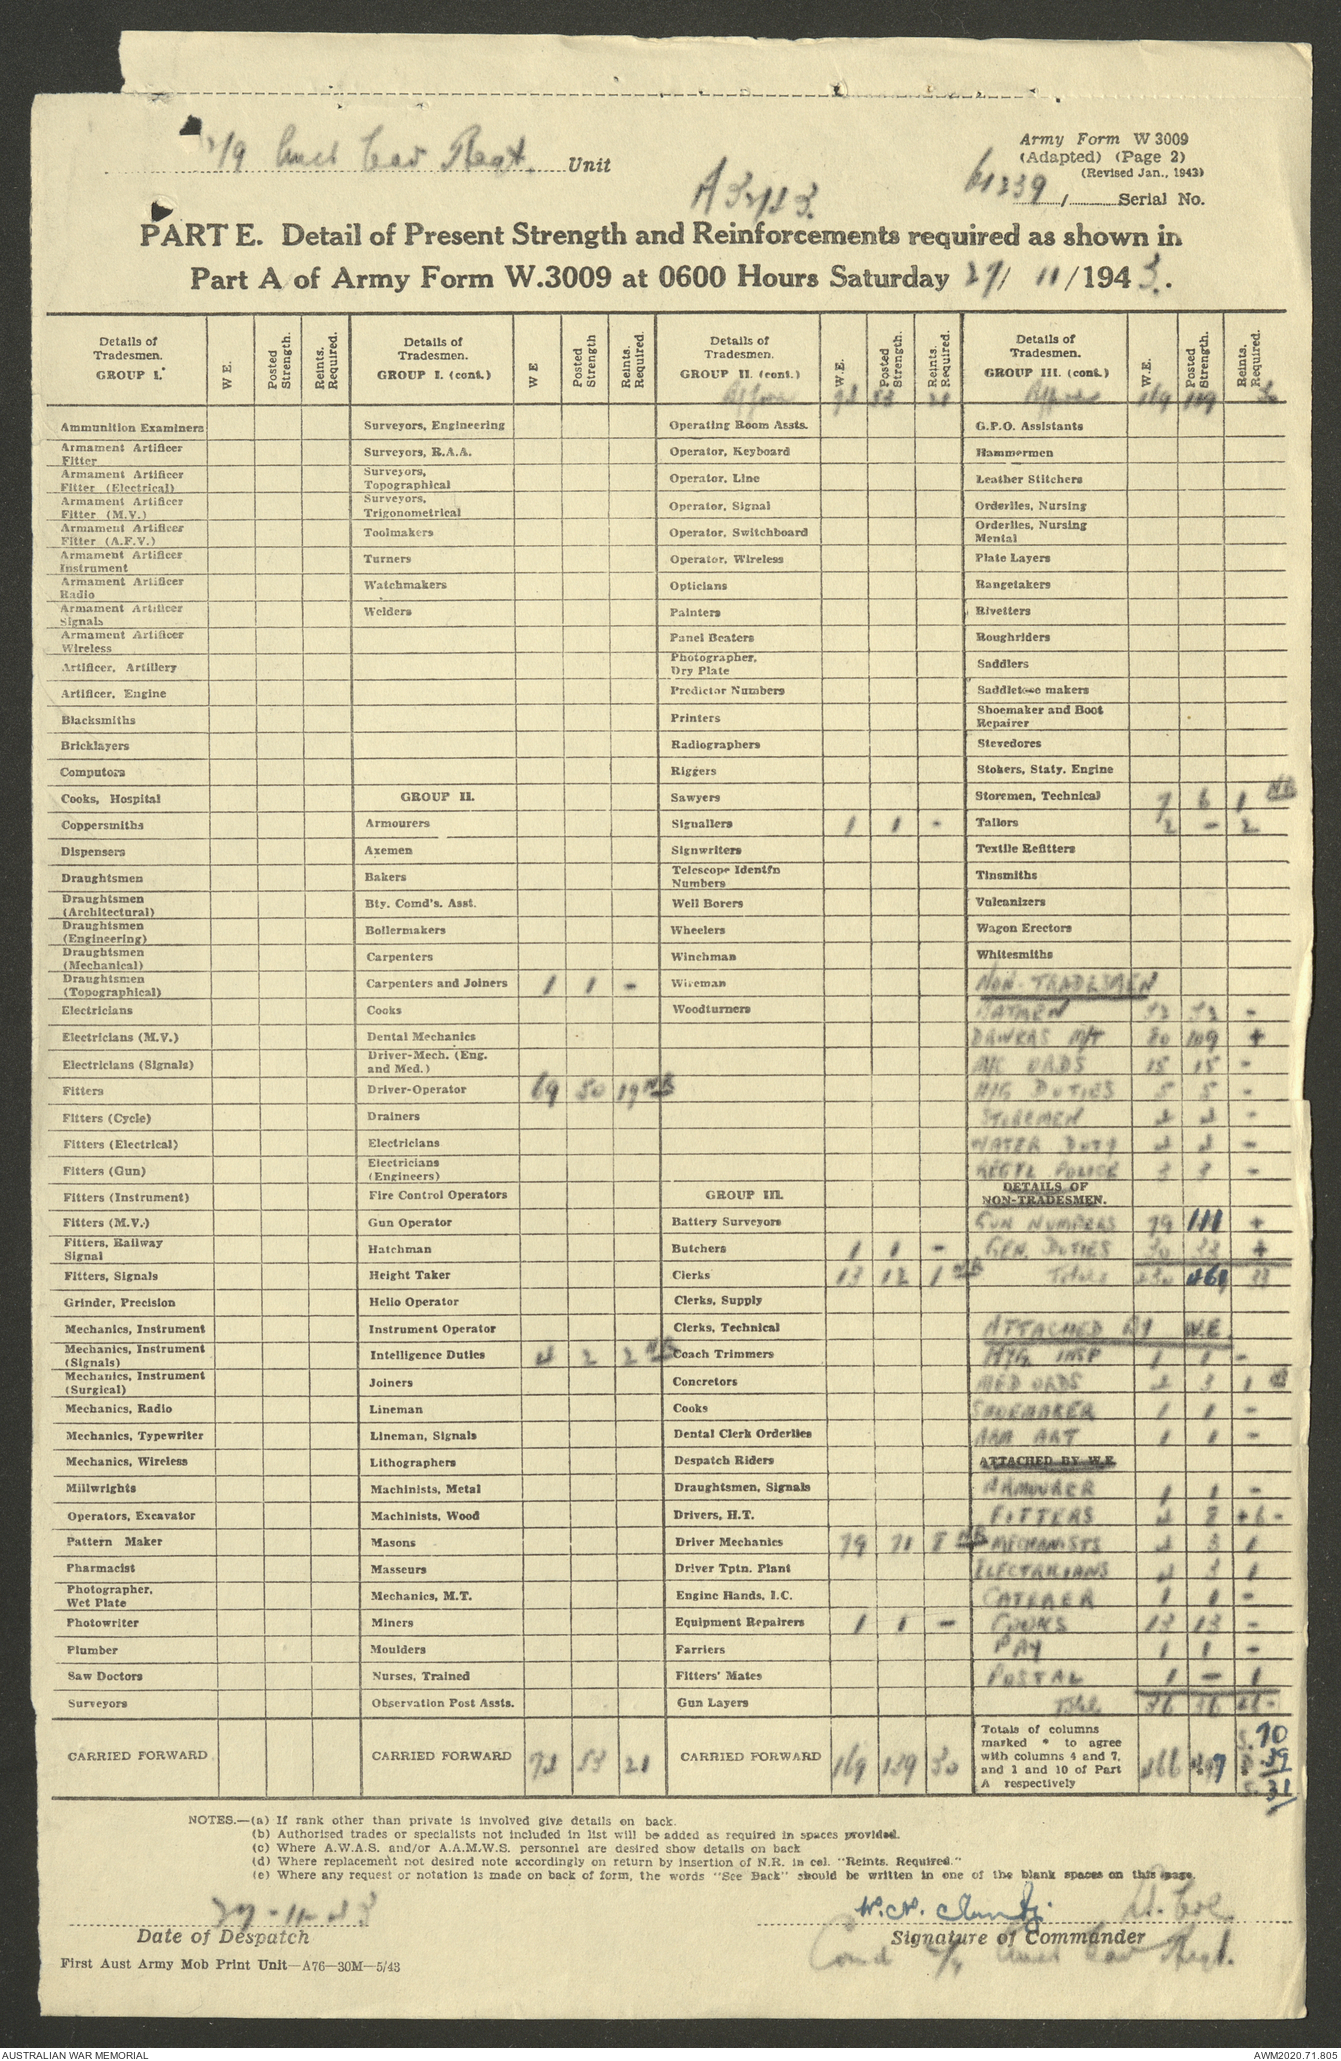 2/9 Aust Cav Regt. Unit
Army Form W 3009
(Adapted) (Page 2)
(Revised Jan., 1943)
61239 / Serial No.
PART E. Detail of Present Strength and Reinforcements required as shown in
Part A of Army Form W.3009 at 0600 Hours Saturday 27/ 11 /1943.
Details of Tradesmen. GROUP I. W E. Posted Strength. Reints. Required. Details of Tradesmen. GROUP I. (cont.) W E Posted Strength Reints. Required. Details of Tradesmen. GROUP II. (cont.) W.E. Posted Strength. Reints. Required. Details of Tradesmen. GROUP III. (cont.) W.E. Posted Strength. Reints. Required.
Ammunition Examiners Surveyors, Engineering Operating Room Assts. G.P.O. Assistants
Armament Artificer Fitter Surveyors, R.A.A. Operator, Keyboard Hammermen
Armament Artificer Fitter (Electrical) Surveyors, Topographical Operator, Line Leather Stitchers
Armament Artificer Fitter (M.V.) Surveyors, Trigonometrical Operator, Signal Orderlies, Nursing
Armament Artificer Fitter (A.F.V.) Toolmakers Operator, Switchboard Orderlies, Nursing Mental
Armament Artificer Instrument Turners Operator, Wireless Plate Layers
Armament Artificer Radio Watchmakers Opticians Rangetakers
Armament Artificer Signals Welders Painters Rivetters
Armament Artificer Wireless Panel Beaters Roughriders
Artificer, Artillery Photographer, Dry Plate Saddlers
Artificer, Engine Predictor Numbers Saddletree makers
Blacksmiths Printers Shoemaker and Boot Repairer
Bricklayers Radiographers Stevedores
Computors Riggers Stokers, Staty. Engine
Cooks, Hospital GROUP II. Sawyers Storemen, Technical 7 6 1 NR
Coppersmiths Armourers Signallers 1 1 - Tailors 2 - 2
Dispensers Axemen Signwriters Textile Refitters
Draughtsmen Bakers Telescope Identfn Numbers Tinsmiths
Draughtsmen (Architectural) Bty. Comd's. Asst. Well Borers Vulcanizers
Draughtsmen (Engineering) Boilermakers Wheelers Wagon Erectors
Draughtsmen (Mechanical) Carpenters Winchman Whitesmiths
Draughtsmen (Topographical) Carpenters and Joiners 1 1 - Wireman NON-TRADESMEN
Electricians Cooks Woodturners BATMEN 32 32 -
Electricians (M.V.) Dental Mechanics DRIVERS M/T 80 109 +
Electricians (Signals) Driver-Mech. (Eng. and Med.) 15 15 -
Fitters Driver-Operator 69 50 19 NR DUTIES 5 5 -
Fitters (Cycle) Drainers STOREMEN 2 2 -
Fitters (Electrical) Electricians WATER DUTY 2 2 -
Fitters (Gun) Electricians (Engineers) REGTL POLICE 3 3 -
Fitters (Instrument) Fire Control Operators GROUP III. DETAILS OF NON-TRADESMEN.
Fitters (M.V.) Gun Operator Battery Surveyors GUN NUMBERS 79 111 +
Fitters, Railway Signal Hatchman Butchers 1 1 - GEN. DUTIES 30 33 +
Fitters, Signals Height Taker Clerks 13 12 1 NR Totals 33
Grinder, Precision Helio Operator Clerks, Supply
Mechanics, Instrument Instrument Operator Clerks, Technical ATTACHED BY W.E.
Mechanics, Instrument (Signals) Intelligence Duties 4 2 2 NR Coach Trimmers HYG INSP 1 1 -
Mechanics, Instrument (Surgical) Joiners Concretors MED ORDS 2 3 1
Mechanics, Radio Lineman Cooks SHOEMAKER 1 1 -
Mechanics, Typewriter Lineman, Signals Dental Clerk Orderlies ARM ART 1 1 -
Mechanics, Wireless Lithographers Despatch Riders ATTACHED BY W.E.
Millwrights Machinists, Metal Draughtsmen, Signals ARMOURER 1 1 -
Operators, Excavator Machinists, Wood Drivers, H.T. FITTERS 2 8 +6 -
Pattern Maker Masons Driver Mechanics 79 71 8 NR MECHANISTS 2 3 1
Pharmacist Masseurs Driver Tptn. Plant ELECTRICIANS 2 3 1
Photographer, Wet Plate Mechanics, M.T. Engine Hands, I.C. CATERER 1 1 -
Photowriter Miners Equipment Repairers 1 1 - COOKS 13 13 -
Plumber Moulders Farriers PAY 1 1 -
Saw Doctors Nurses, Trained Fitters' Mates POSTAL 1 - 1
Surveyors Observation Post Assts. Gun Layers Total
CARRIED FORWARD CARRIED FORWARD 74 53 21 CARRIED FORWARD 169 139 30 Totals of columns marked * to agree with columns 4 and 7, and 1 and 10 of Part A respectively
NOTES.—(a) If rank other than private is involved give details on back.
(b) Authorised trades or specialists not included in list will be added as required in spaces provided.
(c) Where A.W.A.S. and/or A.A.M.W.S. personnel are desired show details on back
(d) Where replacement not desired note accordingly on return by insertion of N.R. in col. "Reints. Required."
(e) Where any request or notation is made on back of form, the words "See Back" should be written in one of the blank spaces on this page.
27-11-43 Lt. Col.
Date of Despatch Signature of Commander
Comd 2/9 Aust Cav Regt.
First Aust Army Mob Print Unit—A76—30M—5/43
AUSTRALIAN WAR MEMORIAL AWM2020.71.805